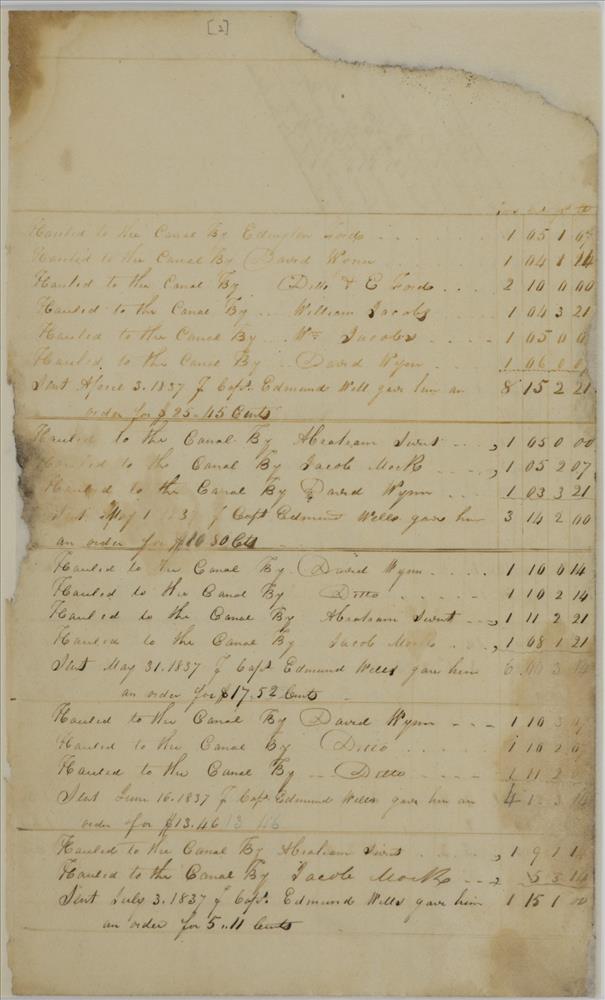 [2]
Hauled to the Canal By Edington Fords 1 05 1 07
Hauled to the Canal By David Wynn 1 04 1 14
Hauled to the Canal By Ditto & E Fords 2 10 0 00
Hauled to the Canal By William Jacobs 1 04 3 21
Hauled to the Canal By Wm Jacobs 1 05 0 0
Hauled to the Canal By David Wynn 1 06 0 0
Sent April 3. 1837 Capt. Edmund Will gave him an 8 15 2 21
order for $25-45 Cents
Hauled to the Canal By Abraham Swut 1 05 0 00
Hauled to the Canal By Jacob Mock 1 05 2 07
Hauled to the Canal By David Wynn 1 03 3 21
Sent May 1 1837 Capt Edmund Wells gave him 3 14 2 00
an order for $10 30 Cts
Hauled to the Canal By David Wynn 1 10 0 14
Hauled to the Canal By Ditto 1 10 2 14
Hauled to the Canal By Abraham Swut 1 11 2 21
Hauled to the Canal By Jacob Mock 1 08 1 21
Sent May 31. 1837 Capt. Edmund Wells gave him 6 00 3 14
an order for $17.52 Cents
Hauled to the Canal By David Wynn 1 10 3 07
Hauled to the Canal By Ditto 1 10 2 07
Hauled to the Canal By Ditto 1 11 2
Sent June 16. 1837 Capt. Edmund Wells gave him an 4 3 14
order for $13.46 13 46
Hauled to the Canal By Abraham Swut 1 9 1 14
Hauled to the Canal By Jacob Mock 5 3 14
Sent July 3. 1837 Capt. Edmund Wells gave him 1 15 1 00
an order for 5 .. 11 Cents